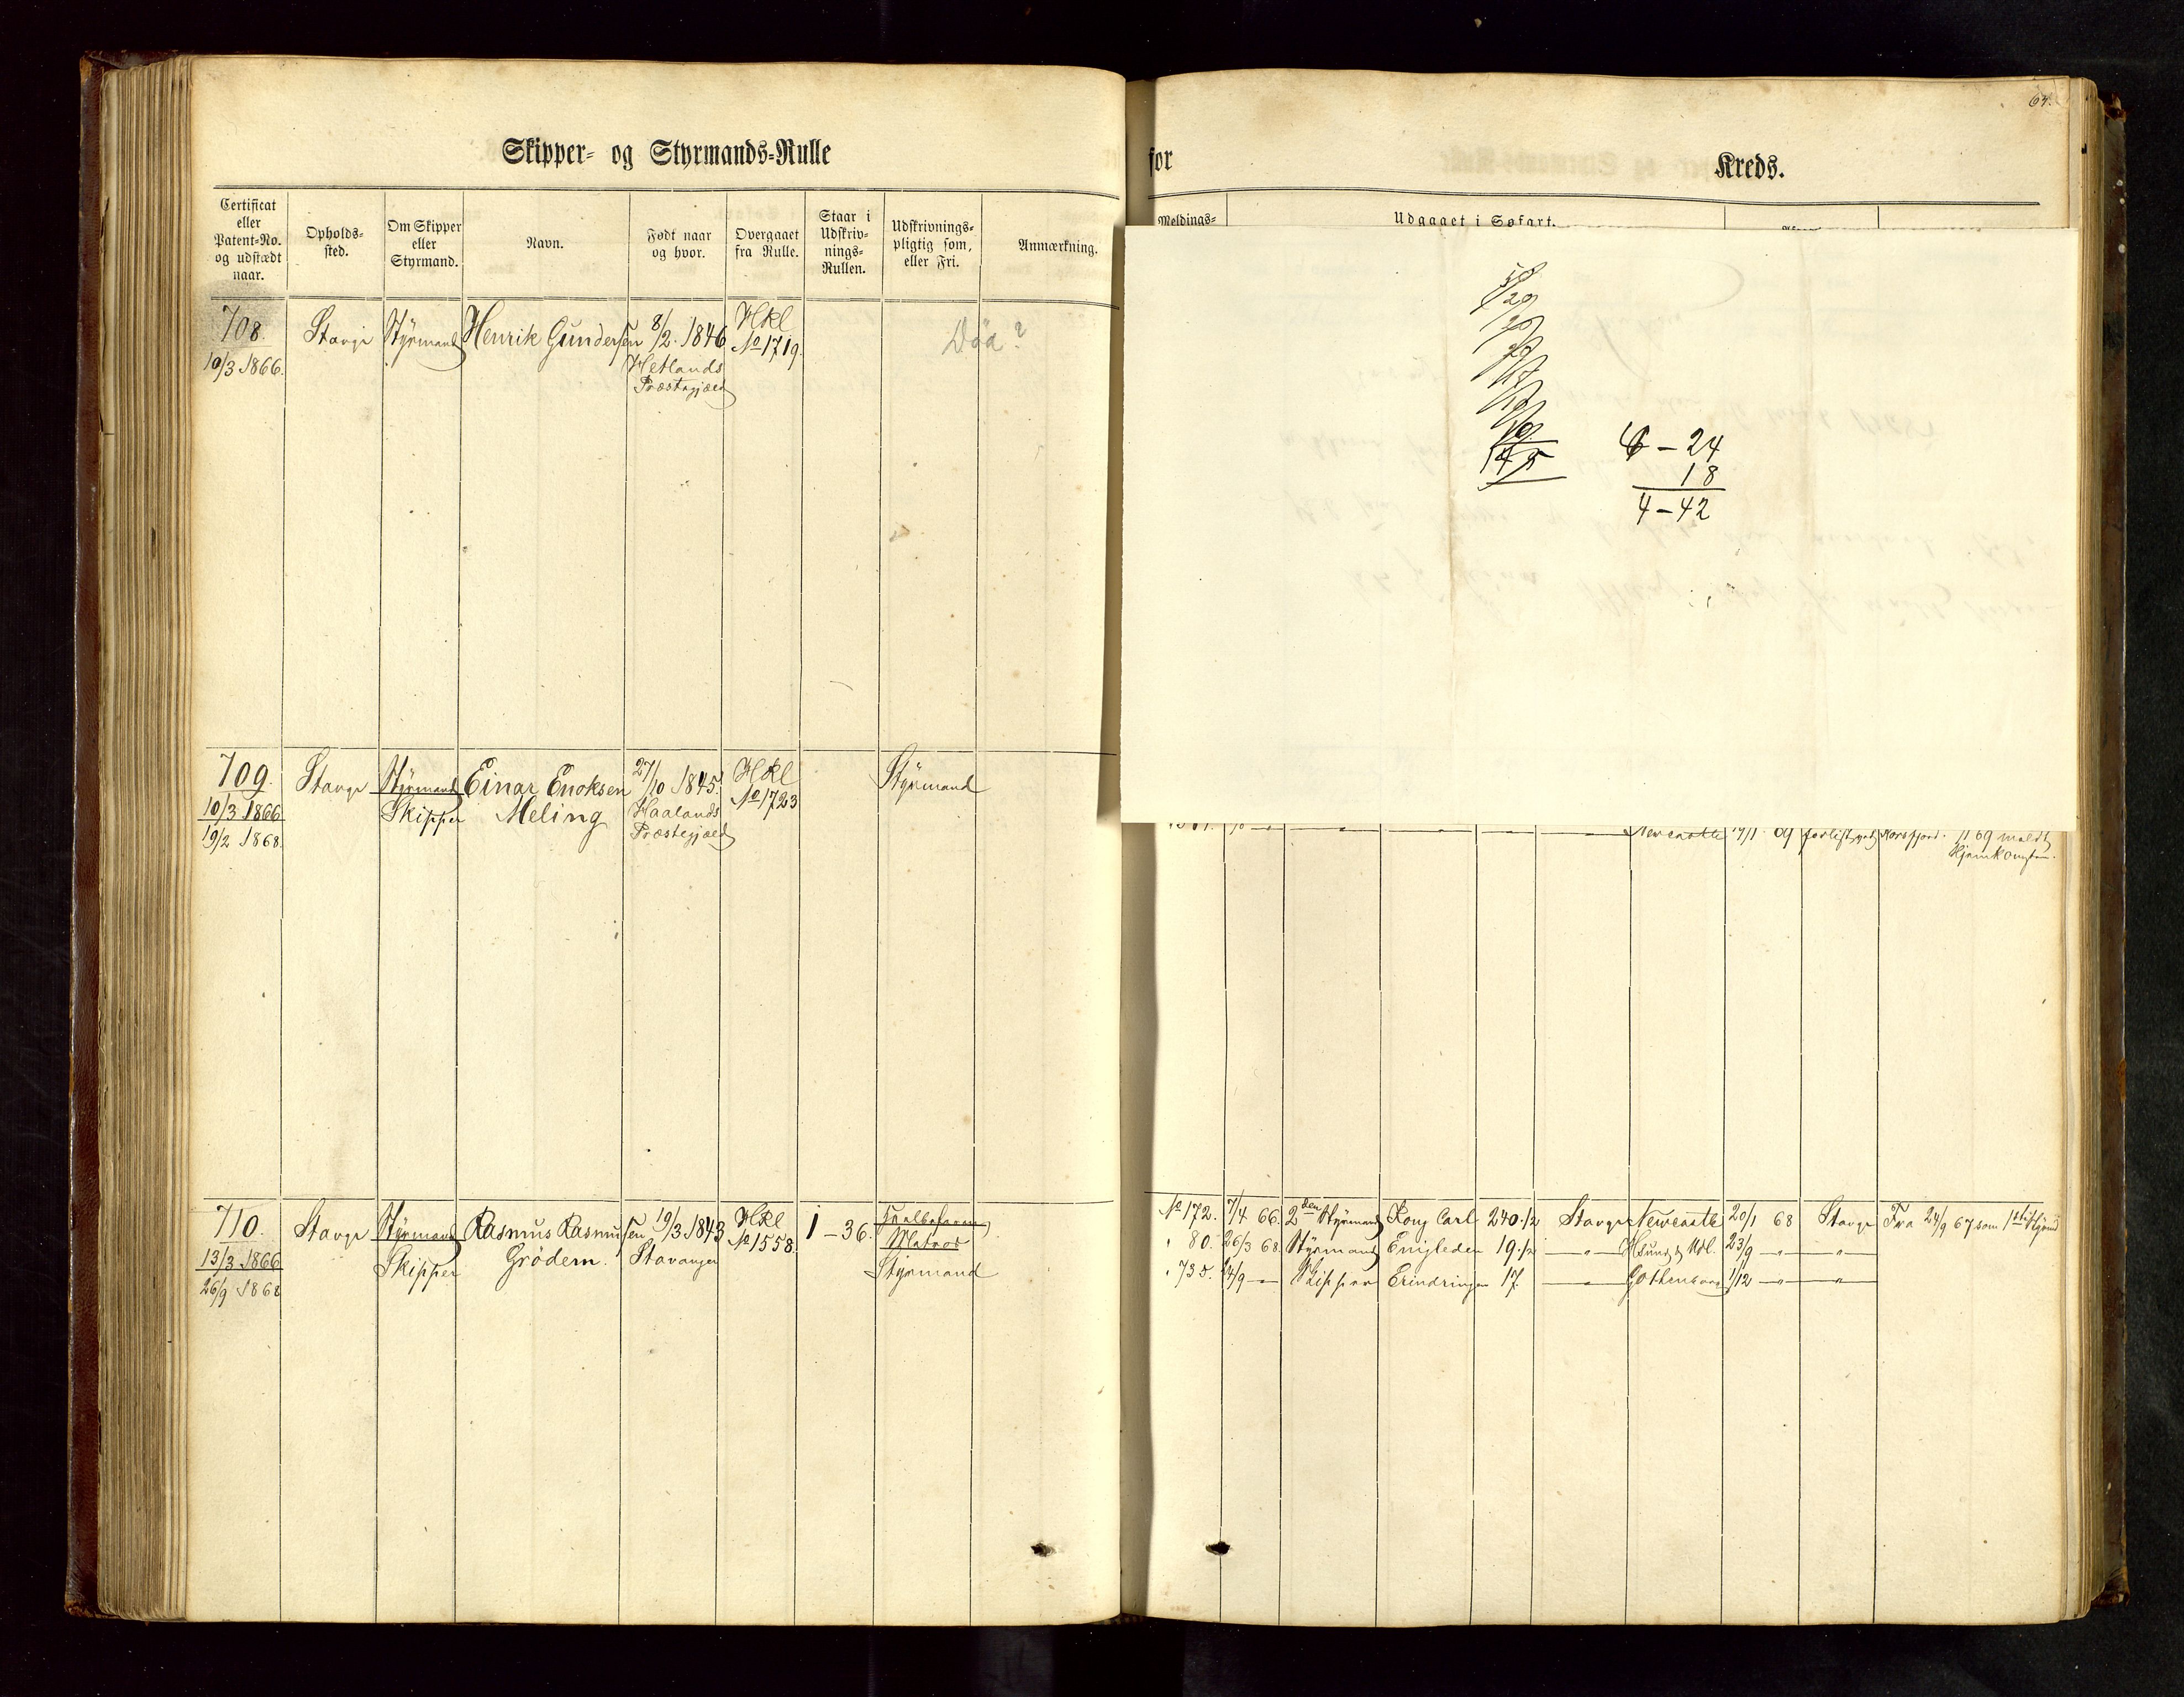 Skipper- og Styrmands-Rulle
for
Kreds.
64.
Certificat eller Patent-No. og udstædt naar.
Opholds-sted.
Om Skipper eller Styrmand.
Navn.
Født naar og hvor.
Overgaaet fra Rulle.
Staar i Udskriv-nings-Rullen.
Udskrivnings-pligtig som, eller Fri.
Anmærkning.
Meldings-
Udgaaet i Søfart.
708. Stavgr Styrmand Henrik Gundersen 8/2. 1846 HKl Død?
10/3 1866. Hetlands No 1719.
Præstegjæld
6 - 24
18
4 - 42
709. Stavgr Styrmand Einar Enoksen 27/10 1845. HKl Styrmand
10/3 1866 Skipper Meling Haalands No 1723
19/2 1868. Præstegjæld
Newcastle 14/1 69 forlist Korsfjord. 69 meldt
Hjemkomsten.
710. Stavgr Styrmand Rasmus Rasmussen 19/3 1843 HKl 1 - 36.
13/3 1866 Skipper Grödem. Stavanger No 1558. Matros
26/9 1868 Styrmand
No 172. 7/4 66. 2den Styrmand Kong Carl 240.1/2 Stavgr Newcastle 20/1 68 Stavgr Fra 24/9 67 som 1ste Styrmd
" 80. 26/3 68. Styrmand Enigheden 19.1/2 — " — 23/9 — " — — " —
" 735. 24/9 — " — Skipper Erindringen 17. — " — Gottenborg 1/12 — " — — " —